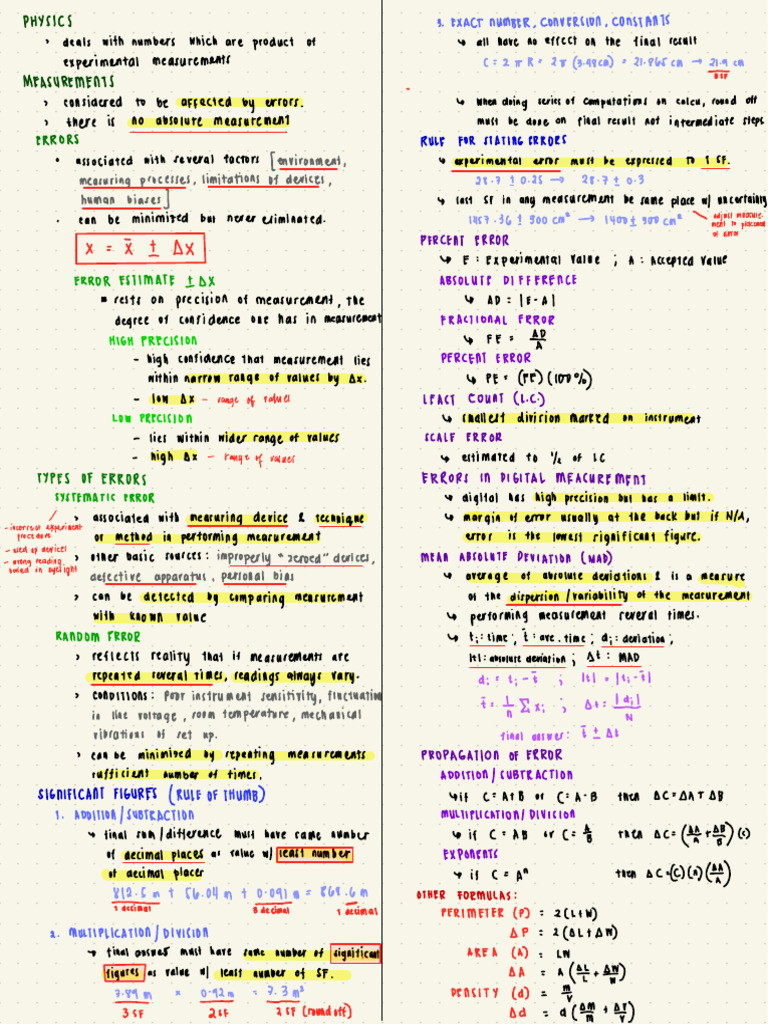 PHYSICS
› deals with numbers which are product of
experimental measurements
MEASUREMENTS
› considered to be affected by errors.
› there is no absolute measurement
ERRORS
• associated with several factors [environment,
measuring processes, limitations of devices,
human biases]
• can be minimized but never eliminated.
x = x̄ ± Δx
ERROR ESTIMATE ± Δx
▪ rests on precision of measurement, the
degree of confidence one has in measurement
HIGH PRECISION
– high confidence that measurement lies
within narrow range of values by Δx.
– low Δx – range of values
LOW PRECISION
– lies within wider range of values
– high Δx – range of values
TYPES OF ERRORS
SYSTEMATIC ERROR
› associated with measuring device & technique
or method in performing measurement
- incorrect experiment
procedure
- used of devices
- wrong reading
based on eyesight
› other basic sources: improperly "zeroed" devices,
defective apparatus, personal bias
› can be detected by comparing measurement
with known value
RANDOM ERROR
› reflects reality that if measurements are
repeated several times, readings always vary.
› conditions: Poor instrument sensitivity, fluctuation
in line voltage, room temperature, mechanical
vibrations of set up.
› can be minimized by repeating measurements
sufficient number of times.
SIGNIFICANT FIGURES (RULE OF THUMB)
1. ADDITION/SUBTRACTION
↳ final sum/difference must have same number
of decimal places as value w/ least number
of decimal places
812.5 m + 56.04 m + 0.091 m = 868.6 m
1 decimal 3 decimal 1 decimal
2. MULTIPLICATION/DIVISION
↳ final answer must have same number of significant
figures as value w/ least number of SF.
7.89 m × 0.92 m = 7.3 m²
3 SF 2 SF 2 SF (round off)
3. EXACT NUMBER, CONVERSION, CONSTANTS
↳ all have no effect on the final result
C = 2πR = 2π(3.48cm) = 21.865 cm → 21.9 cm
3SF
↳ when doing series of computations on calcu, round off
must be done on final result not intermediate steps
RULE FOR STATING ERRORS
↳ experimental error must be expressed to 1 SF.
28.7 ± 0.25 → 28.7 ± 0.3
↳ last SF in any measurement be same place w/ uncertainty
1457.36 ± 300 cm² → 1400 ± 300 cm²
adjust measure-
ment to placement
of error
PERCENT ERROR
↳ E: Experimental Value ; A: Accepted Value
ABSOLUTE DIFFERENCE
↳ AD = |E-A|
FRACTIONAL ERROR
↳ FE = AD/A
PERCENT ERROR
↳ PE = (FE)(100%)
LEAST COUNT (L.C.)
↳ smallest division marked on instrument
SCALE ERROR
↳ estimated to ½ of LC
ERRORS IN DIGITAL MEASUREMENT
↳ digital has high precision but has a limit.
↳ margin of error usually at the back but if N/A,
error is the lowest significant figure.
MEAN ABSOLUTE DEVIATION (MAD)
↳ average of absolute deviations & is a measure
of the dispersion/variability of the measurement
↳ performing measurement several times.
↳ tᵢ: time ; t̄: ave. time ; dᵢ: deviation ;
|t|: absolute deviation ; Δt: MAD
dᵢ = tᵢ - t̄ ; |t| = |tᵢ - t̄|
t̄ = 1/n Σ xᵢ ; Δt = |dᵢ|/N
final answer: t̄ ± Δt
PROPAGATION OF ERROR
ADDITION/SUBTRACTION
↳ if C = A+B or C = A-B then ΔC = ΔA + ΔB
MULTIPLICATION/DIVISION
↳ if C = AB or C = A/B then ΔC = (ΔA/A + ΔB/B)(C)
EXPONENTS
↳ if C = Aⁿ then ΔC = (C)(n)(ΔA/A)
OTHER FORMULAS:
PERIMETER (P) = 2(L+W)
ΔP = 2(ΔL+ΔW)
AREA (A) = LW
ΔA = A(ΔL/L + ΔW/W)
DENSITY (d) = m/V
Δd = d(Δm/m + ΔV/V)